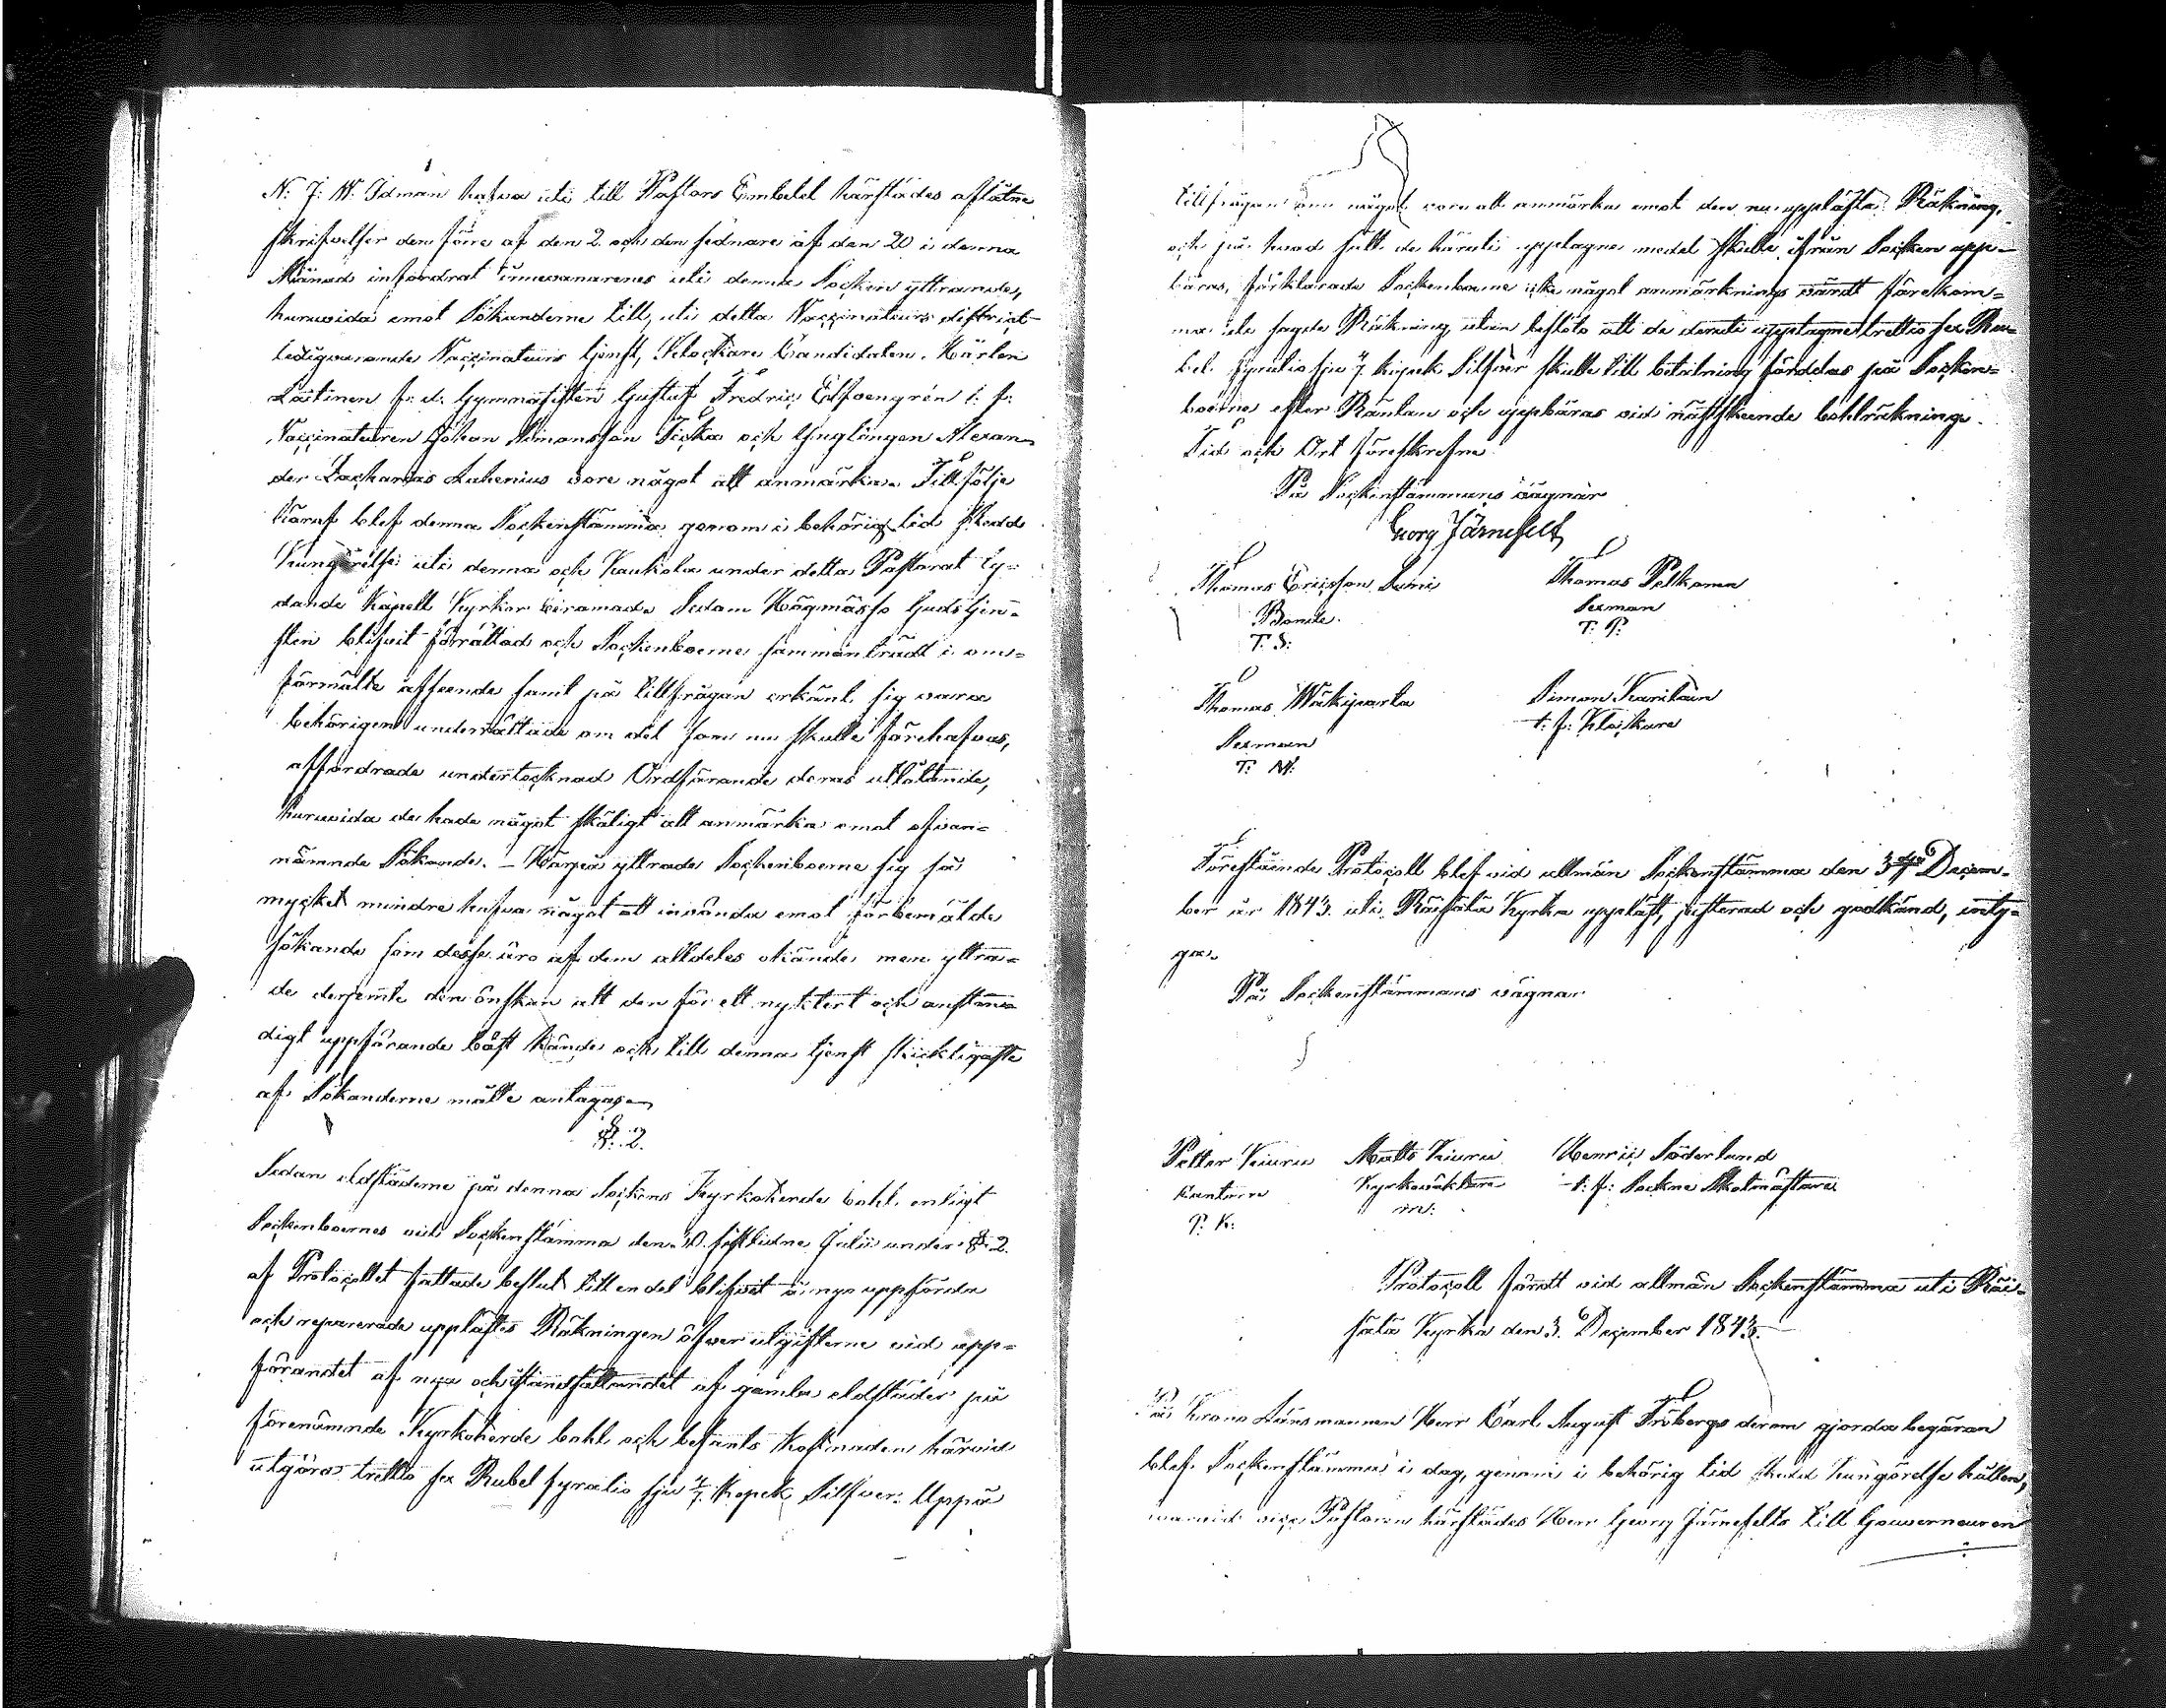 N: J: W. Idman hafva uti till Pastors Embetet härstädes aflåtne
skrifvelser den förre af den 2. och den sednare af den 20 i denna
Månad infordrat innevånarenes uti denna Socken yttrande,
huruvida emot Sökanderne till, uti detta Vaccinateurs district
ledigvarande Vaccinateurs tjenst, Klockare Candidaten Mårten
Laitinen f. d. Gymnasisten Gustaf Fredric Elfvengrén t. f.
Vaccinateuren Johan Simonsson Ticka och Ynglingen Alexan-
der Zacharias Lahenius vore något att anmärka. Till följe
häraf blef denna Sockenstämma genom i behörig tid skedd
Kungörelse uti denna och Kaukola under detta Pastorat ly-
dande Kapell Kyrkor Sedan Högmässo Gudstjen-
sten blifvit förrättad och Sockenboerne sammanträdt i om-
förmälte afseende samt på tillfrågan erkänt sig vara
behörigen underrättade om det som nu skulle förehafvas,
affordrade undertecknad Ordförande deras utlåtande,
huruvida de hade något skäligt att anmärka emot ofvan-
nämnde Sökande. – Härpå yttrade Sockenboerne sig så
mycket mindre hafva något att invända emot förbemälde
sökande som desse äro af dem alldeles okände, men yttra-
de derjemte den önskan att den för ett nyktert och anstän-
digt uppförande bäst kände och till denna tjenst skickligaste
af Sökanderne måtte antagas.
§. 2.
Sedan eldstäderne på denna Sockens Kyrkoherde bohl enligt
Sockenboernes vid Sockenstämma den 30. sistlidne Julii under §. 2.
af Protocollet fattade beslut till en del blifvit å nyo uppförda
och reparerade upplästes Räkningen öfver utgifterne vid upp-
förandet af nya och iståndsättandet af gamla eldstäder på
förenämnde Kyrkoherde bohl och befants Kostnaden härvid
utgöra trettio sex Rubel fyratio sju 4/7 Kopek Silfver. Uppå
tillfrågan om något vore att anmärka emot den nu uppläste Räkning,
och på hvad sätt de häruti upptagne medel skulle ifrån Socken upp-
bäras, förklarade Sockenboerne icke något anmärknings värdt förekom-
ma uti sagde Räkning utan beslöto att de deruti upptagne trettio sex Ru-
bel fyratio sju 4/7 kopek Silfver skulle till betalning fördelas på Socken-
boerne efter Räntan och uppbäras vid nästskeende bohlräkning.
Tid och Ort föreskrefne
På Sockenstämmans vägnar
Georg Järnefelt
Thomas Ericsson Sumi Thomas Pelkonen
Bonde. Sexman
T. S: T: P:
Thomas Mäkiparta Simon Karilain
Sexman t. f: Klockare
T: M:
Förestående Protocoll blef vid allmän Sockenstämma den 3dje Decem-
ber år 1843. uti Räisälä Kyrka uppläst, justerad och godkänd, inty-
gas.
På Sockenstämmans vägnar
Petter Kiuru Matts Kiuru Henric Söderlund
Kyrkoväktare t: f: Sockne Skolmästare
P. K: m:
Protocoll fördt vid allmän Sockenstämma uti Räi-
sälä Kyrka den 3. December 1843.
På Krono Länsmannen Herr Carl August Frobergs derom gjorda begäran
blef Sockenstämma i dag, genom i behörig tid skedd Kungörelse hållen,
varvid vice Pastorn härstädes Herr Georg Järnefelts till Gouverneuren